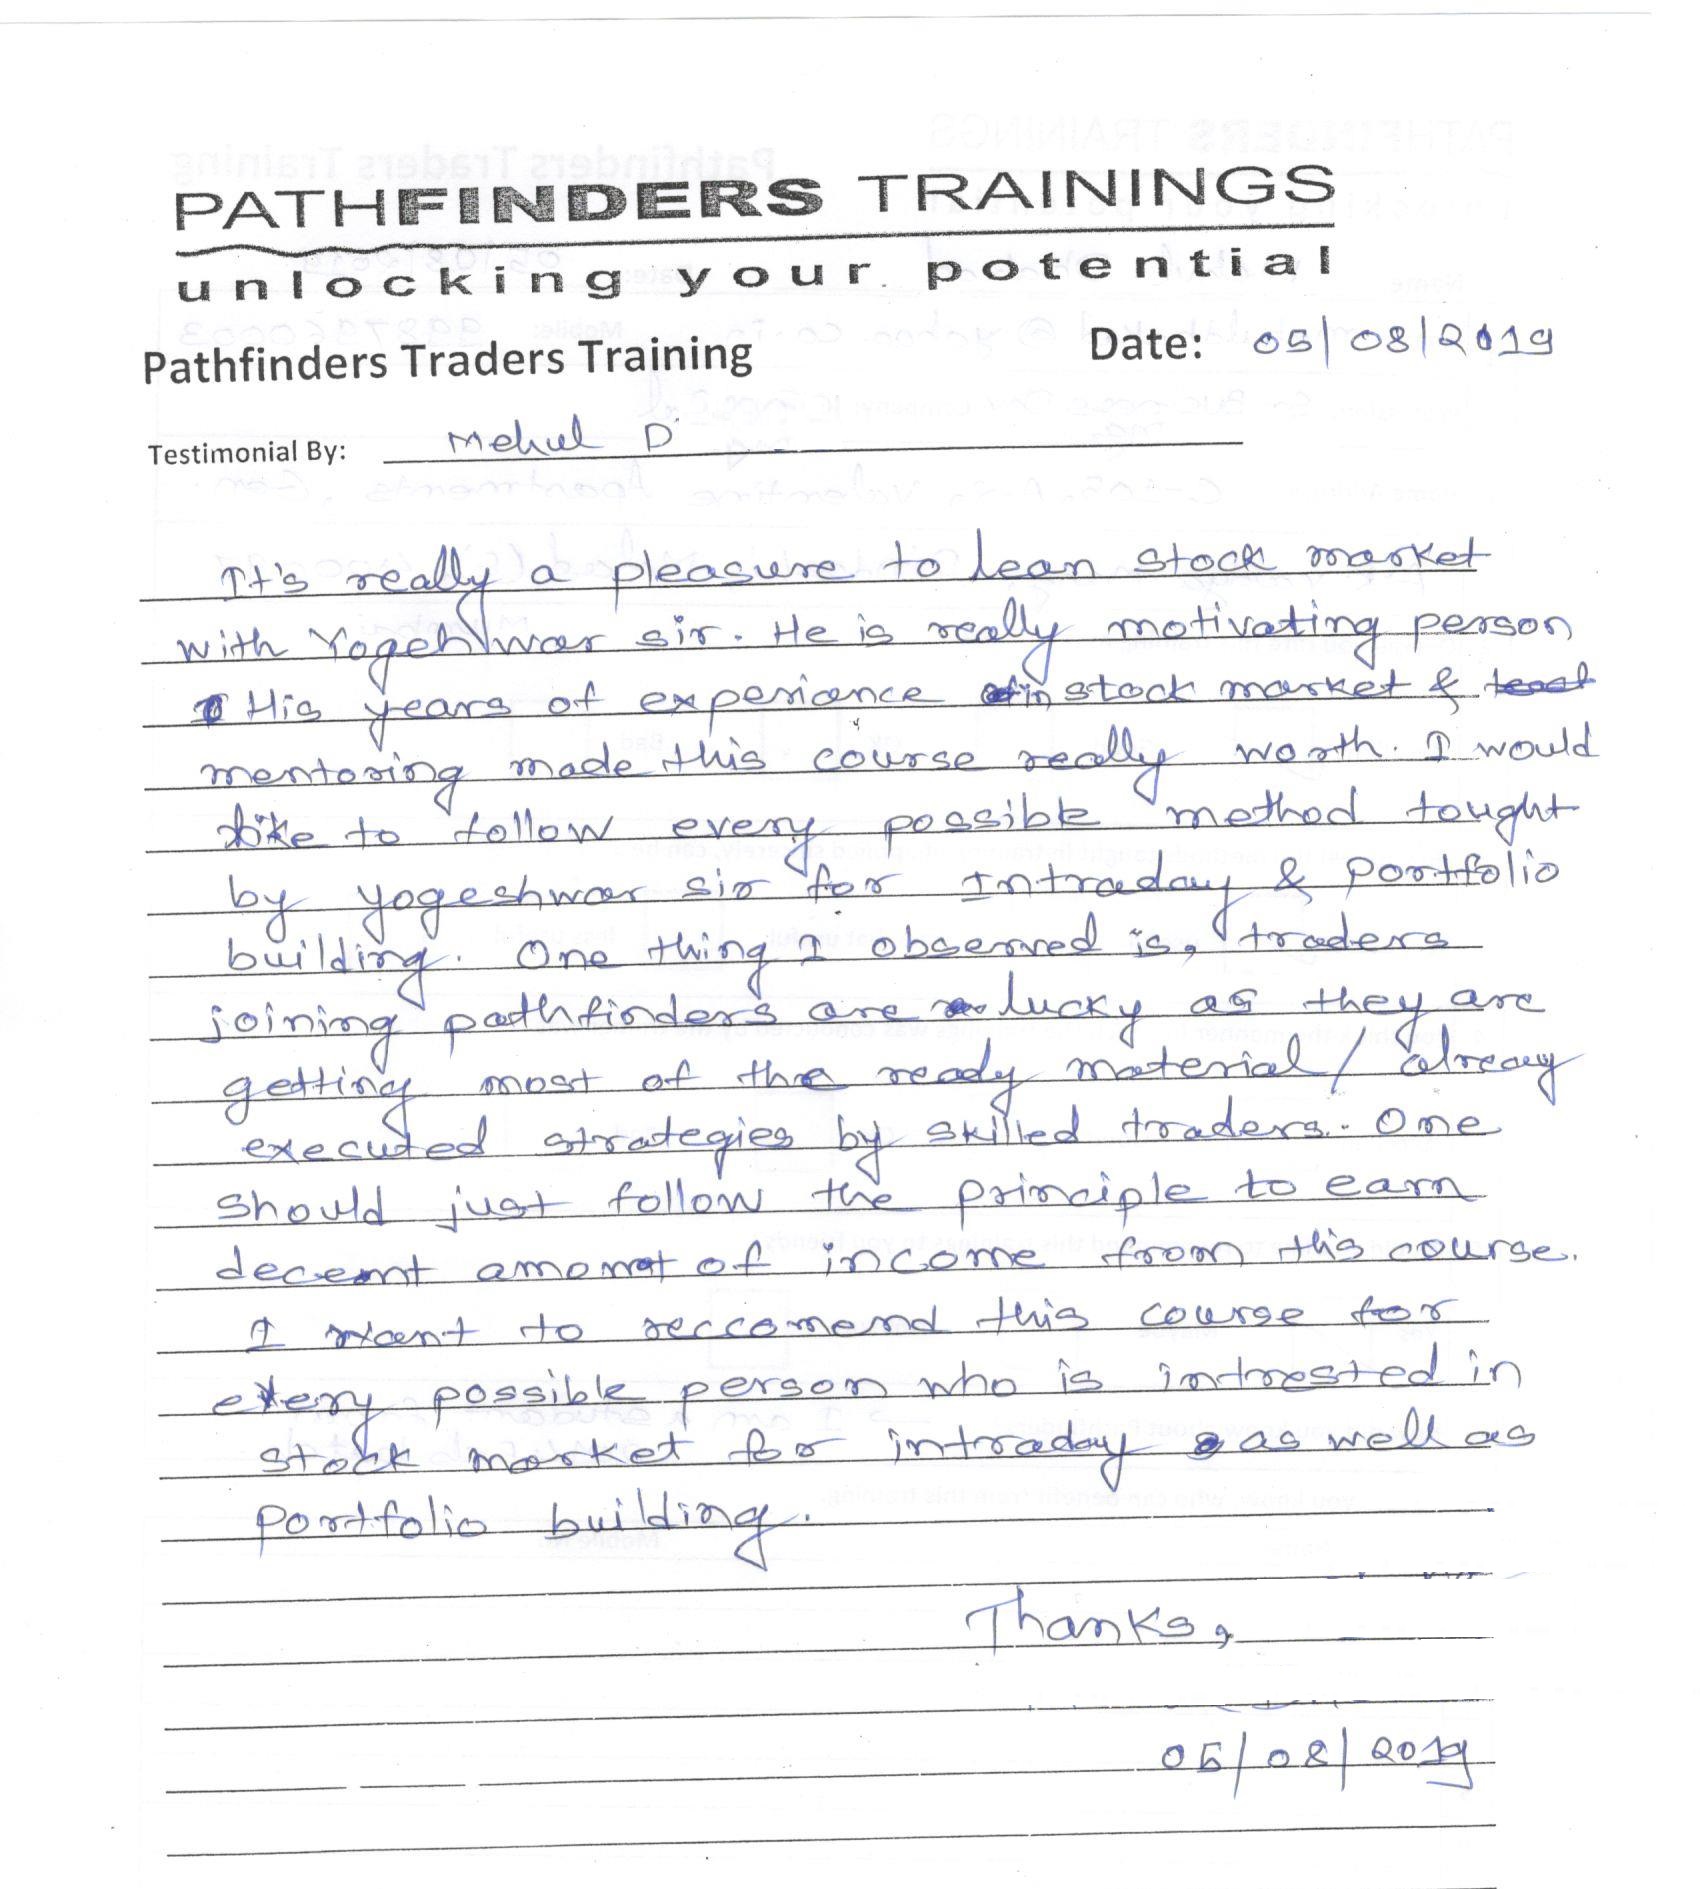 PATHFINDERS TRAININGS
unlocking your potential
Pathfinders Traders Training
Date: 05/08/2019
Testimonial By: Mehul D
It's really a pleasure to lean stock market
with Yogehwar sir. He is really motivating person
His years of experiance in stock market &
mentoring made this course really worth. I would
like to follow every possible method tought
by yogeshwar sir for Intraday & Portfolio
building. One thing I observed is, traders
joining pathfinders are lucky as they are
getting most of the ready material / alreay
executed strategies by skilled traders.. One
should just follow the principle to earn
decent amont of income from this course.
I want to reccomend this course for
every possible person who is intrested in
stock market for intraday as well as
Portfolio building.
Thanks,
05/08/2019